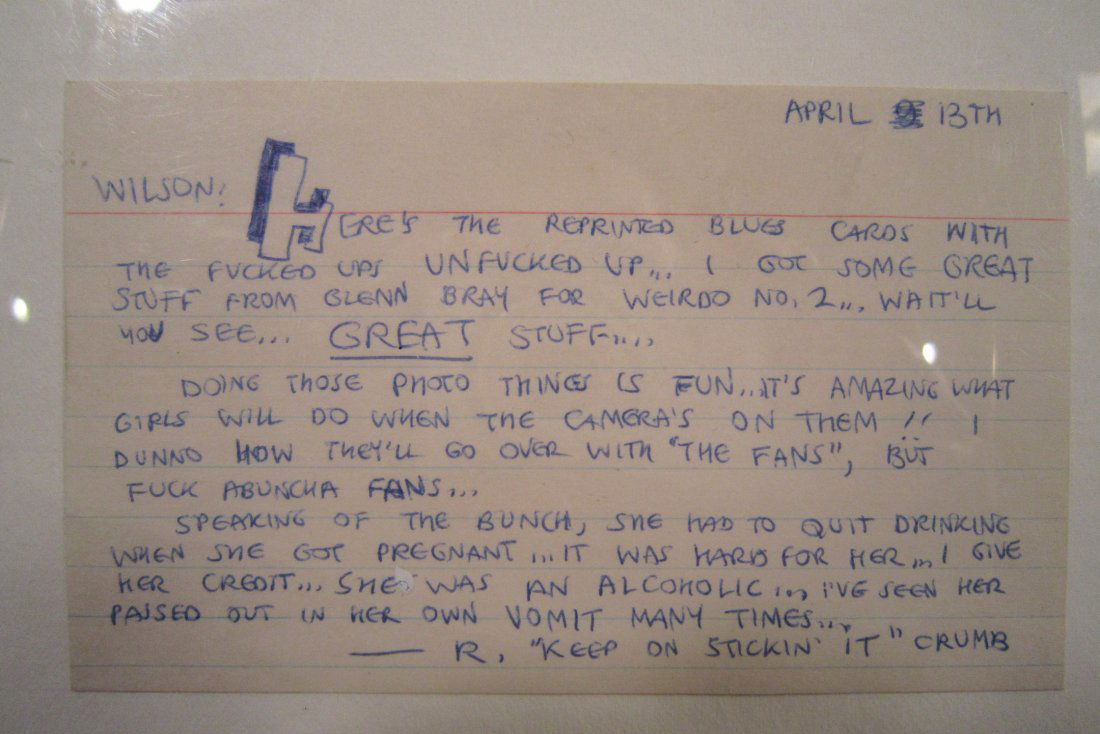 APRIL 13TH
WILSON!
HERE'S THE REPRINTED BLUES CARDS WITH
THE FUCKED UPS UNFUCKED UP... I GOT SOME GREAT
STUFF FROM GLENN BRAY FOR WEIRDO NO. 2... WAIT'LL
YOU SEE... GREAT STUFF....
DOING THOSE PHOTO THINGS IS FUN...IT'S AMAZING WHAT
GIRLS WILL DO WHEN THE CAMERA'S ON THEM!! I
DUNNO HOW THEY'LL GO OVER WITH "THE FANS", BUT
FUCK ABUNCHA FANS...
SPEAKING OF THE BUNCH, SHE HAD TO QUIT DRINKING
WHEN SHE GOT PREGNANT...IT WAS HARD FOR HER... I GIVE
HER CREDIT... SHE WAS AN ALCOHOLIC... I'VE SEEN HER
PASSED OUT IN HER OWN VOMIT MANY TIMES...
— R. "KEEP ON STICKIN' IT" CRUMB